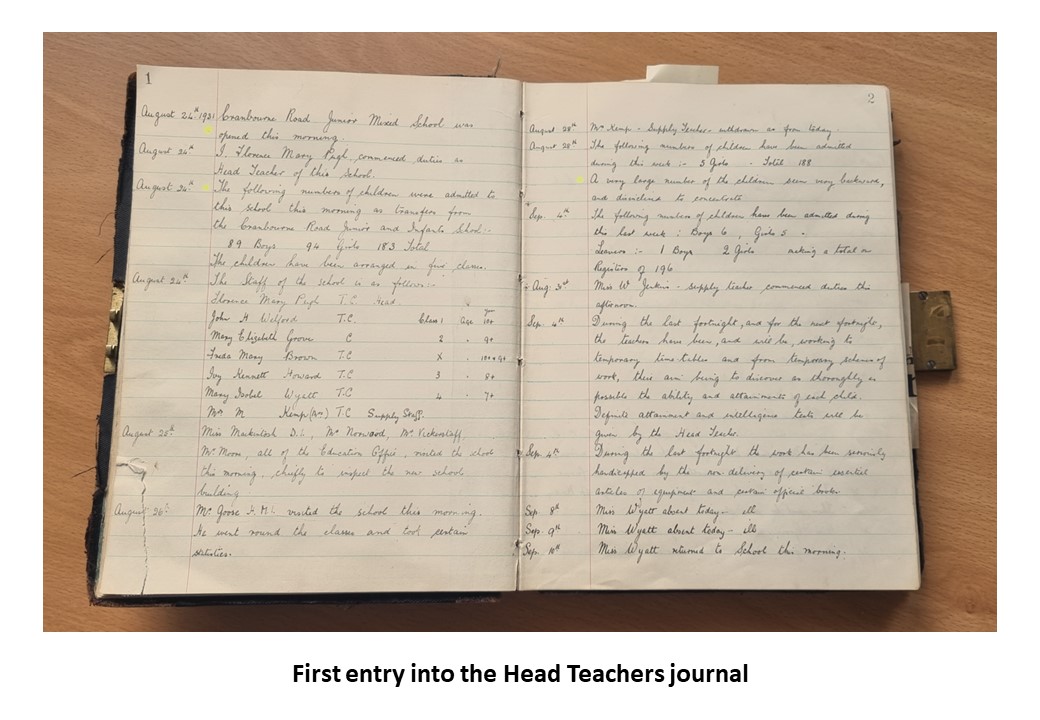 1
August 24th 1931 Cranbourne Road Junior Mixed School was
opened this morning.
August 24th I, Florence Mary Pugh, commenced duties as
Head Teacher of this School.
August 24th The following numbers of children were admitted to
this school this morning as transfers from
the Cranbourne Road Junior and Infants School:-
89 Boys 94 Girls 183 Total
The children have been arranged in four classes.
August 24th The Staff of the school is as follows:-
Florence Mary Pugh T.C. Head
John H Welford T.C. Class 1 Age 10+
Mary Elizabeth Grove C 2 " 9+
Freda Mary Brown T.C X "
Ivy Kenneth Howard T.C 3 " 8+
Mary Isobel Wyatt T.C 4 " 7+
Mrs M Kemp (Mrs) T.C Supply Staff.
August 25th Miss Mackintosh D.I., Mr Norwood, Mr Vickerstaff,
Mr Moon, all of the Education Office, visited the school
this morning, chiefly to inspect the new school
building
August 26th Mr Goose H.M.I. visited the school this morning.
He went round the classes and took certain
statistics.
2
August 28th Mrs Kemp - Supply Teacher - withdrawn as from today.
August 28th The following numbers of children have been admitted
during this week :- 5 Girls - Total 188
A very large number of the children seem very backward,
and disinclined to concentrate
Sep. 4th The following numbers of children have been admitted during
this last week : Boys 6, Girls 5 -
Leavers :- 1 Boys 2 Girls making a total on
Registers of 196
Aug: 31st Miss W. Jenkins - supply teacher commenced duties this
afternoon.
Sep. 4th During the last fortnight, and for the next fortnight,
the teachers have been, and will be, working to
temporary time-tables and from temporary schemes of
work, their aim being to discover as thoroughly as
possible the ability and attainments of each child.
Definite attainment and intelligence tests will be
given by the Head Teacher.
Sep. 4th During the last fortnight the work has been seriously
handicapped by the non delivery of certain essential
articles of equipment and certain official books.
Sep 8th Miss Wyatt absent today - ill.
Sep. 9th Miss Wyatt absent today - ill.
Sep. 10th Miss Wyatt returned to School this morning.
First entry into the Head Teachers journal